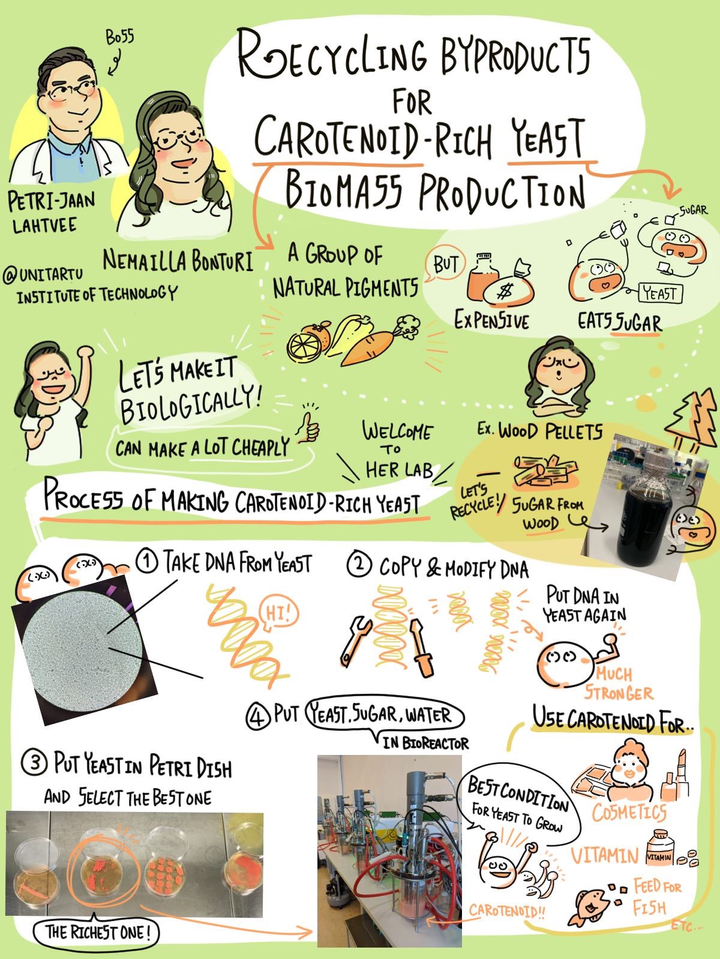 Boss
RECYCLING BYPRODUCTS
FOR
CAROTENOID-RICH YEAST
BIOMASS PRODUCTION
PETRI-JAAN
LAHTVEE
NEMAILLA BONTURI
@UNITARTU
INSTITUTE OF TECHNOLOGY
A GROUP OF
NATURAL PIGMENTS
BUT
$
EXPENSIVE
SUGAR
YEAST
EATS SUGAR
LET'S MAKE IT
BIOLOGICALLY!
CAN MAKE A LOT CHEAPLY
WELCOME
TO
HER LAB
EX. WOOD PELLETS
LET'S
RECYCLE!
SUGAR FROM
WOOD
PROCESS OF MAKING CAROTENOID-RICH YEAST
1 TAKE DNA FROM YEAST
HI!
2 COPY & MODIFY DNA
PUT DNA IN
YEAST AGAIN
MUCH
STRONGER
3 PUT YEAST IN PETRI DISH
AND SELECT THE BEST ONE
THE RICHEST ONE!
4 PUT YEAST, SUGAR, WATER
IN BIOREACTOR
BEST CONDITION
FOR YEAST TO GROW
CAROTENOID!!
USE CAROTENOID FOR..
COSMETICS
VITAMIN
VITAMIN
FEED FOR
FISH
ETC...